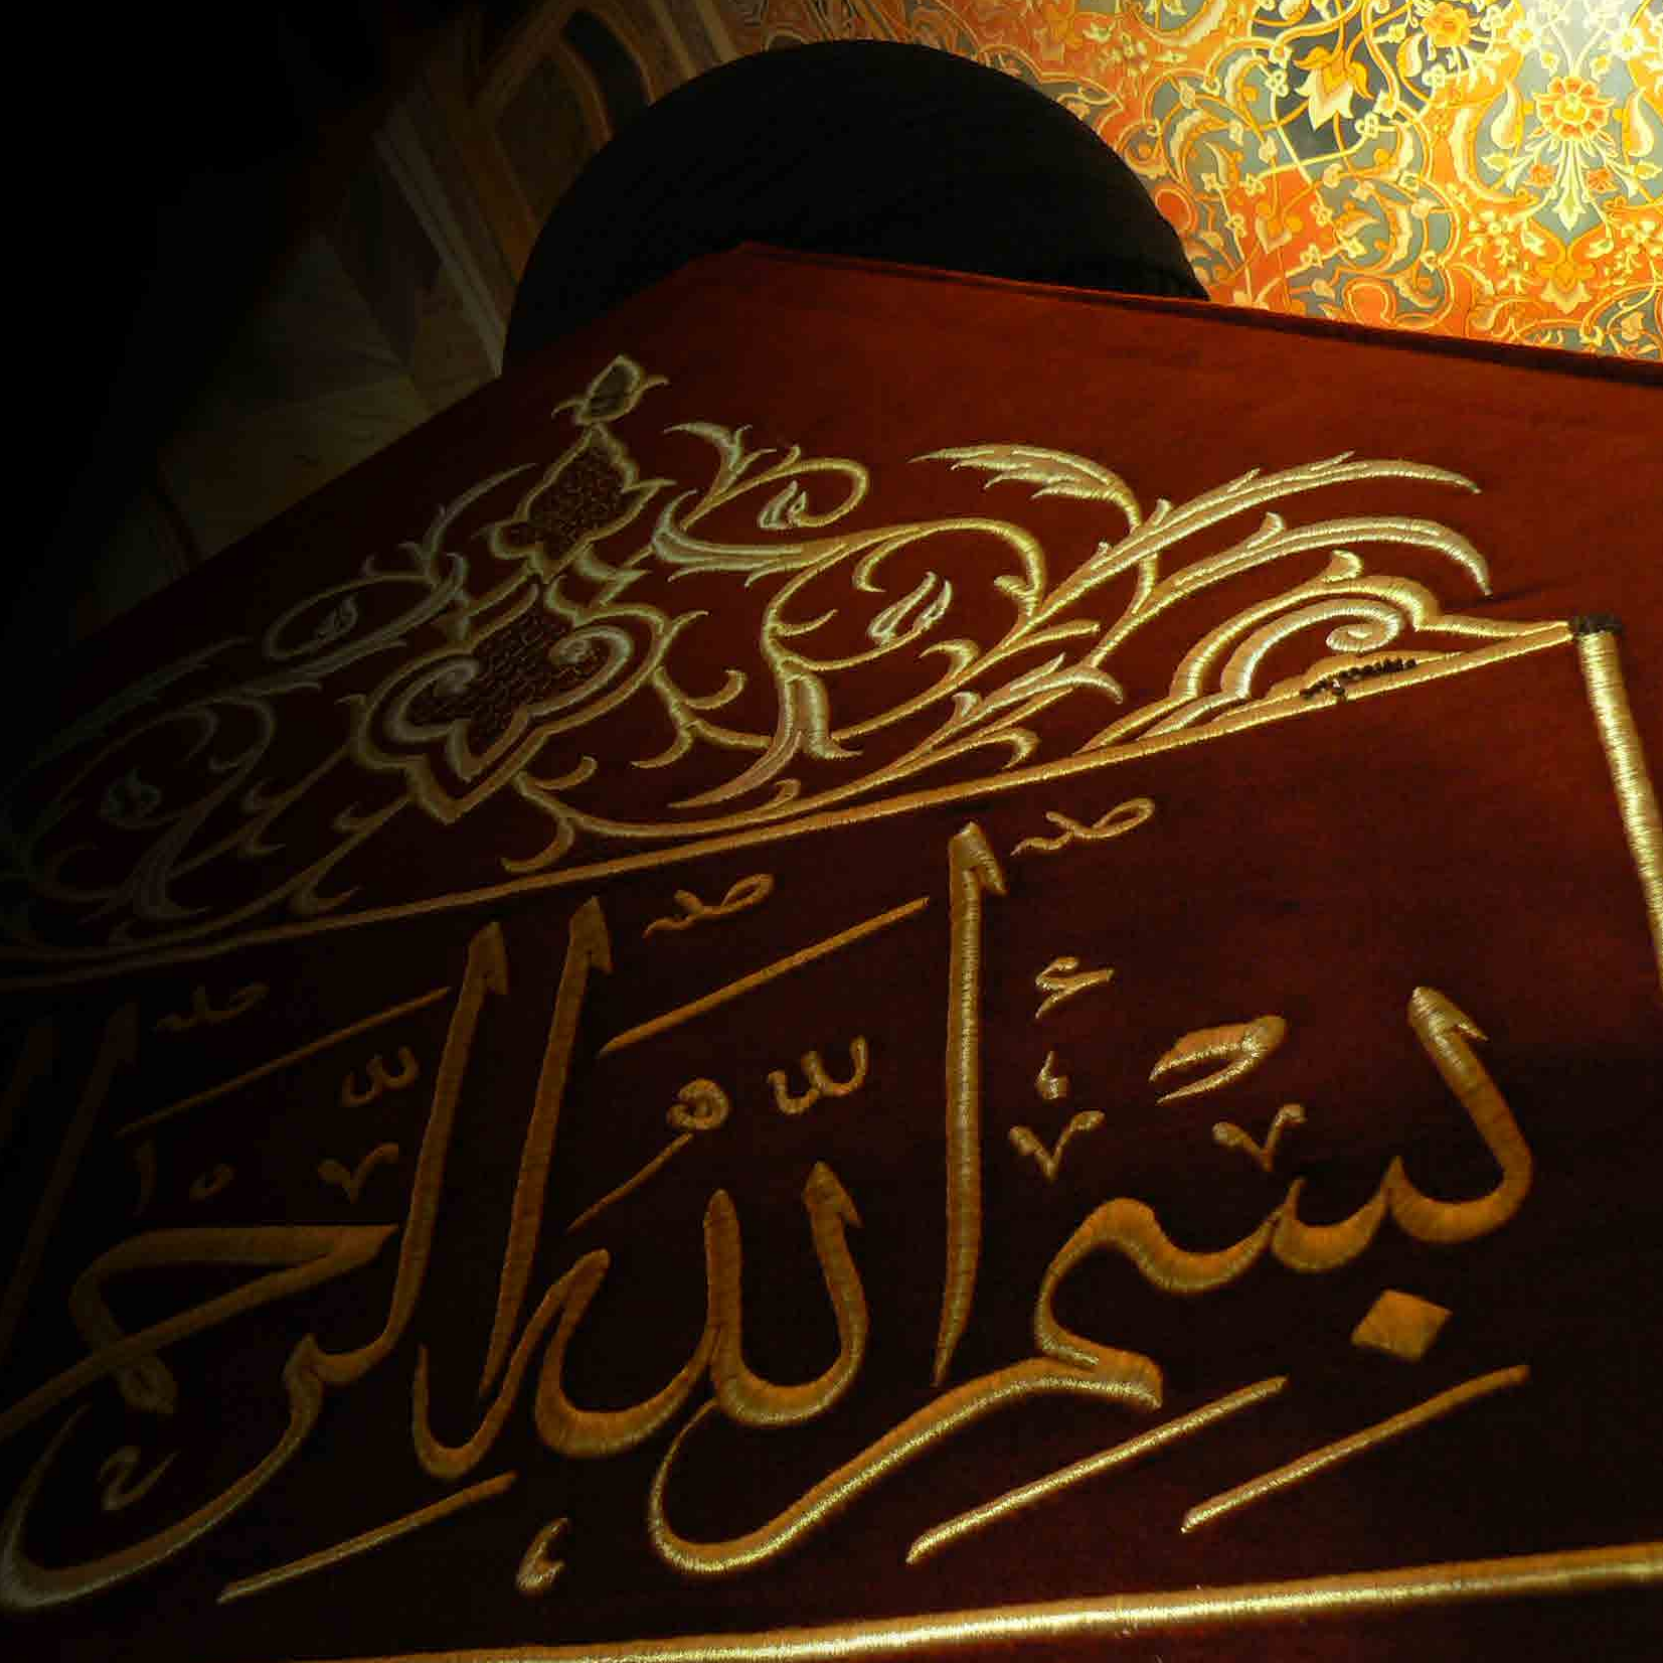 بِسْمِ اللّٰهِ الرَّحْمٰ